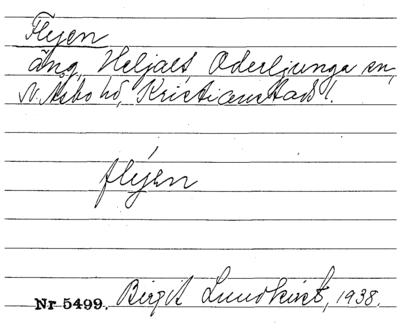 Flyen
äng, Heljalt, Oderljunga sn,
N. Åsbo hd, Kristianstads l.
flýen
Nr 5499. Birgit Lundkvist, 1938.